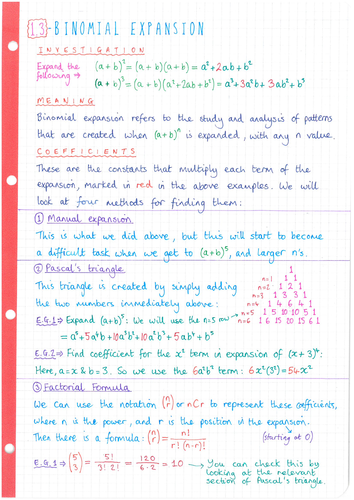 1.3 - BINOMIAL EXPANSION
INVESTIGATION
Expand the following → (a+b)² = (a+b)(a+b) = a² + 2ab + b²
(a+b)³ = (a+b)(a²+2ab+b²) = a³ + 3a²b + 3ab² + b³
MEANING
Binomial expansion refers to the study and analysis of patterns
that are created when (a+b)ⁿ is expanded, with any n value.
COEFFICIENTS
These are the constants that multiply each term of the
expansion, marked in red in the above examples. We will
look at four methods for finding them:
① Manual expansion
This is what we did above, but this will start to become
a difficult task when we get to (a+b)⁵, and larger n's.
② Pascal's triangle
This triangle is created by simply adding
the two numbers immediately above:
1
n=1 1 1
n=2 1 2 1
n=3 1 3 3 1
n=4 1 4 6 4 1
n=5 1 5 10 10 5 1
n=6 1 6 15 20 15 6 1
E.G.1 ⇒ Expand (a+b)⁵: We will use the n=5 row
= a⁵ + 5a⁴b + 10a³b² + 10a²b³ + 5ab⁴ + b⁵
E.G.2 ⇒ Find coefficient for the x² term in expansion of (x+3)⁴:
Here, a=x & b=3. So we use the 6a²b² term: 6x²(3²) = 54x²
③ Factorial Formula
We can use the notation (n r) or nCr to represent these coefficients,
where n is the power, and r is the position in the expansion.
(starting at 0)
Then there is a formula: (n r) = n! / r!(n-r)!
E.G.1 ⇒ (5 3) = 5! / 3! 2! = 120 / 6·2 = 10 → You can check this by
looking at the relevant
section of Pascal's triangle.